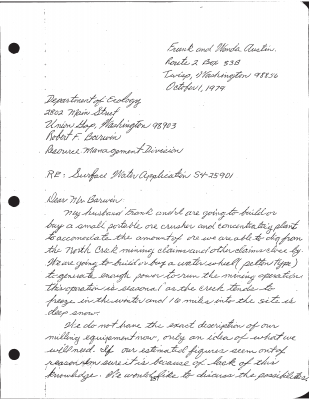 Frank and Wanda Austin
Route 2 Box 33B
Twisp, Washington 98856
October 1, 1979
Department of Ecology
2802 Main Street
Union Gap, Washington 98903
Robert F. Barwin
Resource Management Division
RE: Surface Water Application S4-25901
Dear Mr Barwin:
My husband Frank and I are going to build or
buy a small portable ore crusher and concentrating plant
to accomodate the amount of ore we are able to dig from
the North Creek mining claims and other claims close by.
We are going to build or buy a water wheel (pelton type)
to generate enough power to run the mining operation
this operation is seasonal as the creek tends to
freeze in the winter and 16 miles into the site is
deep snow.
We do not have the exact description of our
milling equipment now, only an idea of what we
will need. If our estimated figures seem out of
reason I'm sure it is because of lack of this
knowledge. We would like to discuss the possibilities